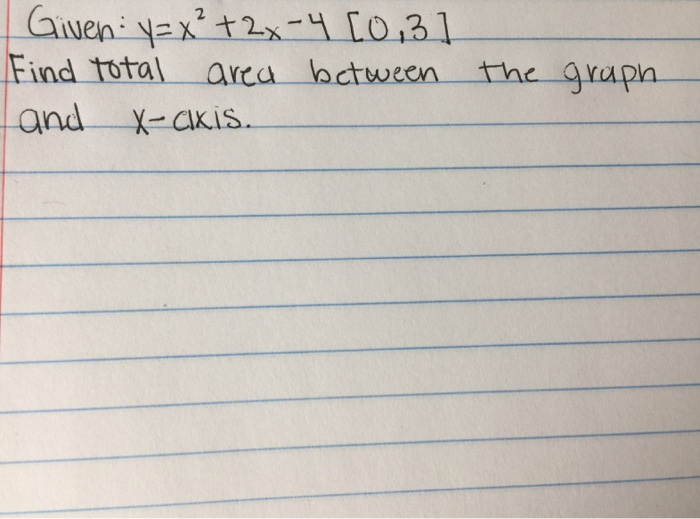 Given: y=x²+2x-4 [0,3]
Find total area between the graph
and x-axis.